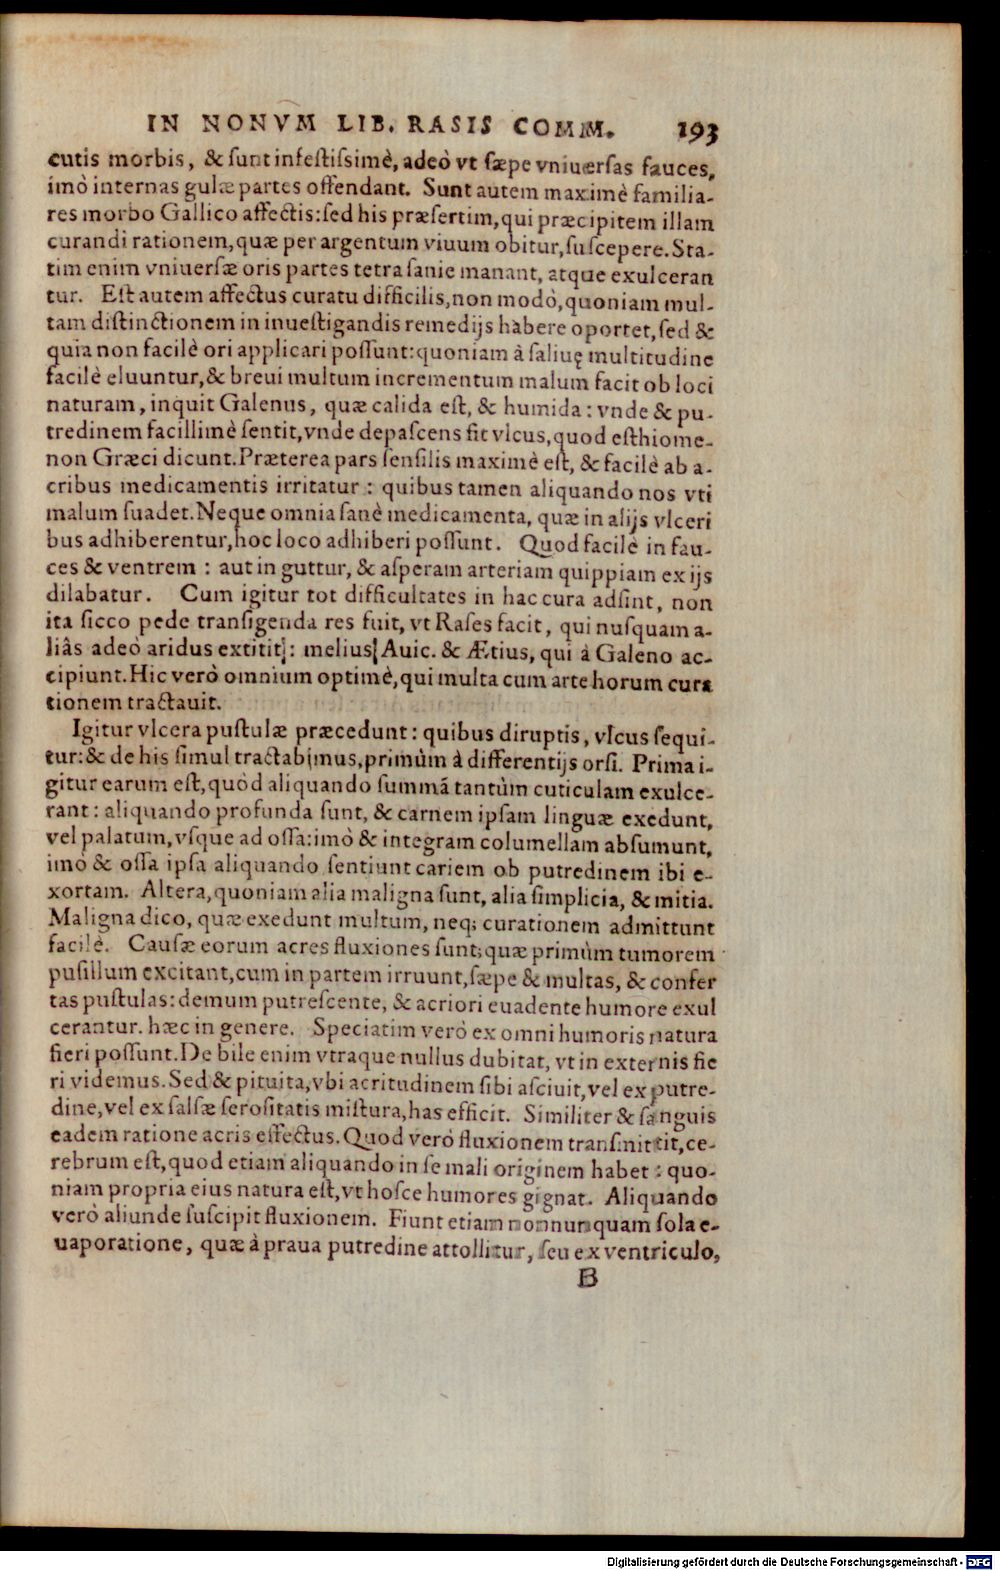 IN NONVM LIB. RASIS COMM. 193
cutis morbis, & sunt infestissimè, adeò vt sæpe vniuersas fauces,
imò internas gulæ partes offendant. Sunt autem maximè familia-
res morbo Gallico affectis: sed his præsertim, qui præcipitem illam
curandi rationem, quæ per argentum viuum obitur, suscepere. Sta-
tim enim vniuersæ oris partes tetra sanie manant, atque exulceran
tur. Est autem affectus curatu difficilis, non modò, quoniam mul-
tam distinctionem in inuestigandis remedijs habere oportet, sed &
quia non facilè ori applicari possunt: quoniam à saliuę multitudine
facilè eluuntur, & breui multum incrementum malum facit ob loci
naturam, inquit Galenus, quæ calida est, & humida: vnde & pu-
tredinem facillimè sentit, vnde depascens fit vlcus, quod esthiome-
non Græci dicunt. Præterea pars sensilis maximè est, & facilè ab a-
cribus medicamentis irritatur: quibus tamen aliquando nos vti
malum suadet. Neque omnia sanè medicamenta, quæ in alijs vlceri
bus adhiberentur, hoc loco adhiberi possunt. Quod facilè in fau-
ces & ventrem: aut in guttur, & asperam arteriam quippiam ex ijs
dilabatur. Cum igitur tot difficultates in hac cura adsint, non
ita sicco pede transigenda res fuit, vt Rases facit, qui nusquam a-
liâs adeò aridus extitit: melius Auic. & Ætius, qui à Galeno ac-
cipiunt. Hic verò omnium optimè, qui multa cum arte horum cura
tionem tractauit.
Igitur vlcera pustulæ præcedunt: quibus diruptis, vlcus sequi-
tur: & de his simul tractabimus, primùm à differentijs orsi. Prima i-
gitur earum est, quòd aliquando summā tantùm cuticulam exulce-
rant: aliquando profunda sunt, & carnem ipsam linguæ exedunt,
vel palatum, vsque ad ossa: imò & integram columellam absumunt,
imò & ossa ipsa aliquando sentiunt cariem ob putredinem ibi e-
xortam. Altera, quoniam alia maligna sunt, alia simplicia, & mitia.
Maligna dico, quæ exedunt multum, neq; curationem admittunt
facilè. Causæ eorum acres fluxiones sunt: quæ primùm tumorem
pusillum excitant, cum in partem irruunt, sæpe & multas, & confer
tas pustulas: demum putrescente, & acriori euadente humore exul
cerantur. hæc in genere. Speciatim verò ex omni humoris natura
fieri possunt. De bile enim vtraque nullus dubitat, vt in externis fie
ri videmus. Sed & pituita, vbi acritudinem sibi asciuit, vel ex putre-
dine, vel ex salsæ serositatis mistura, has efficit. Similiter & sanguis
eadem ratione acris effectus. Quod verò fluxionem transmittit, ce-
rebrum est, quod etiam aliquando in se mali originem habet: quo-
niam propria eius natura est, vt hosce humores gignat. Aliquando
verò aliunde suscipit fluxionem. Fiunt etiam nonnunquam sola e-
uaporatione, quæ à praua putredine attollitur, seu ex ventriculo,
B
Digitalisierung gefördert durch die Deutsche Forschungsgemeinschaft - DFG